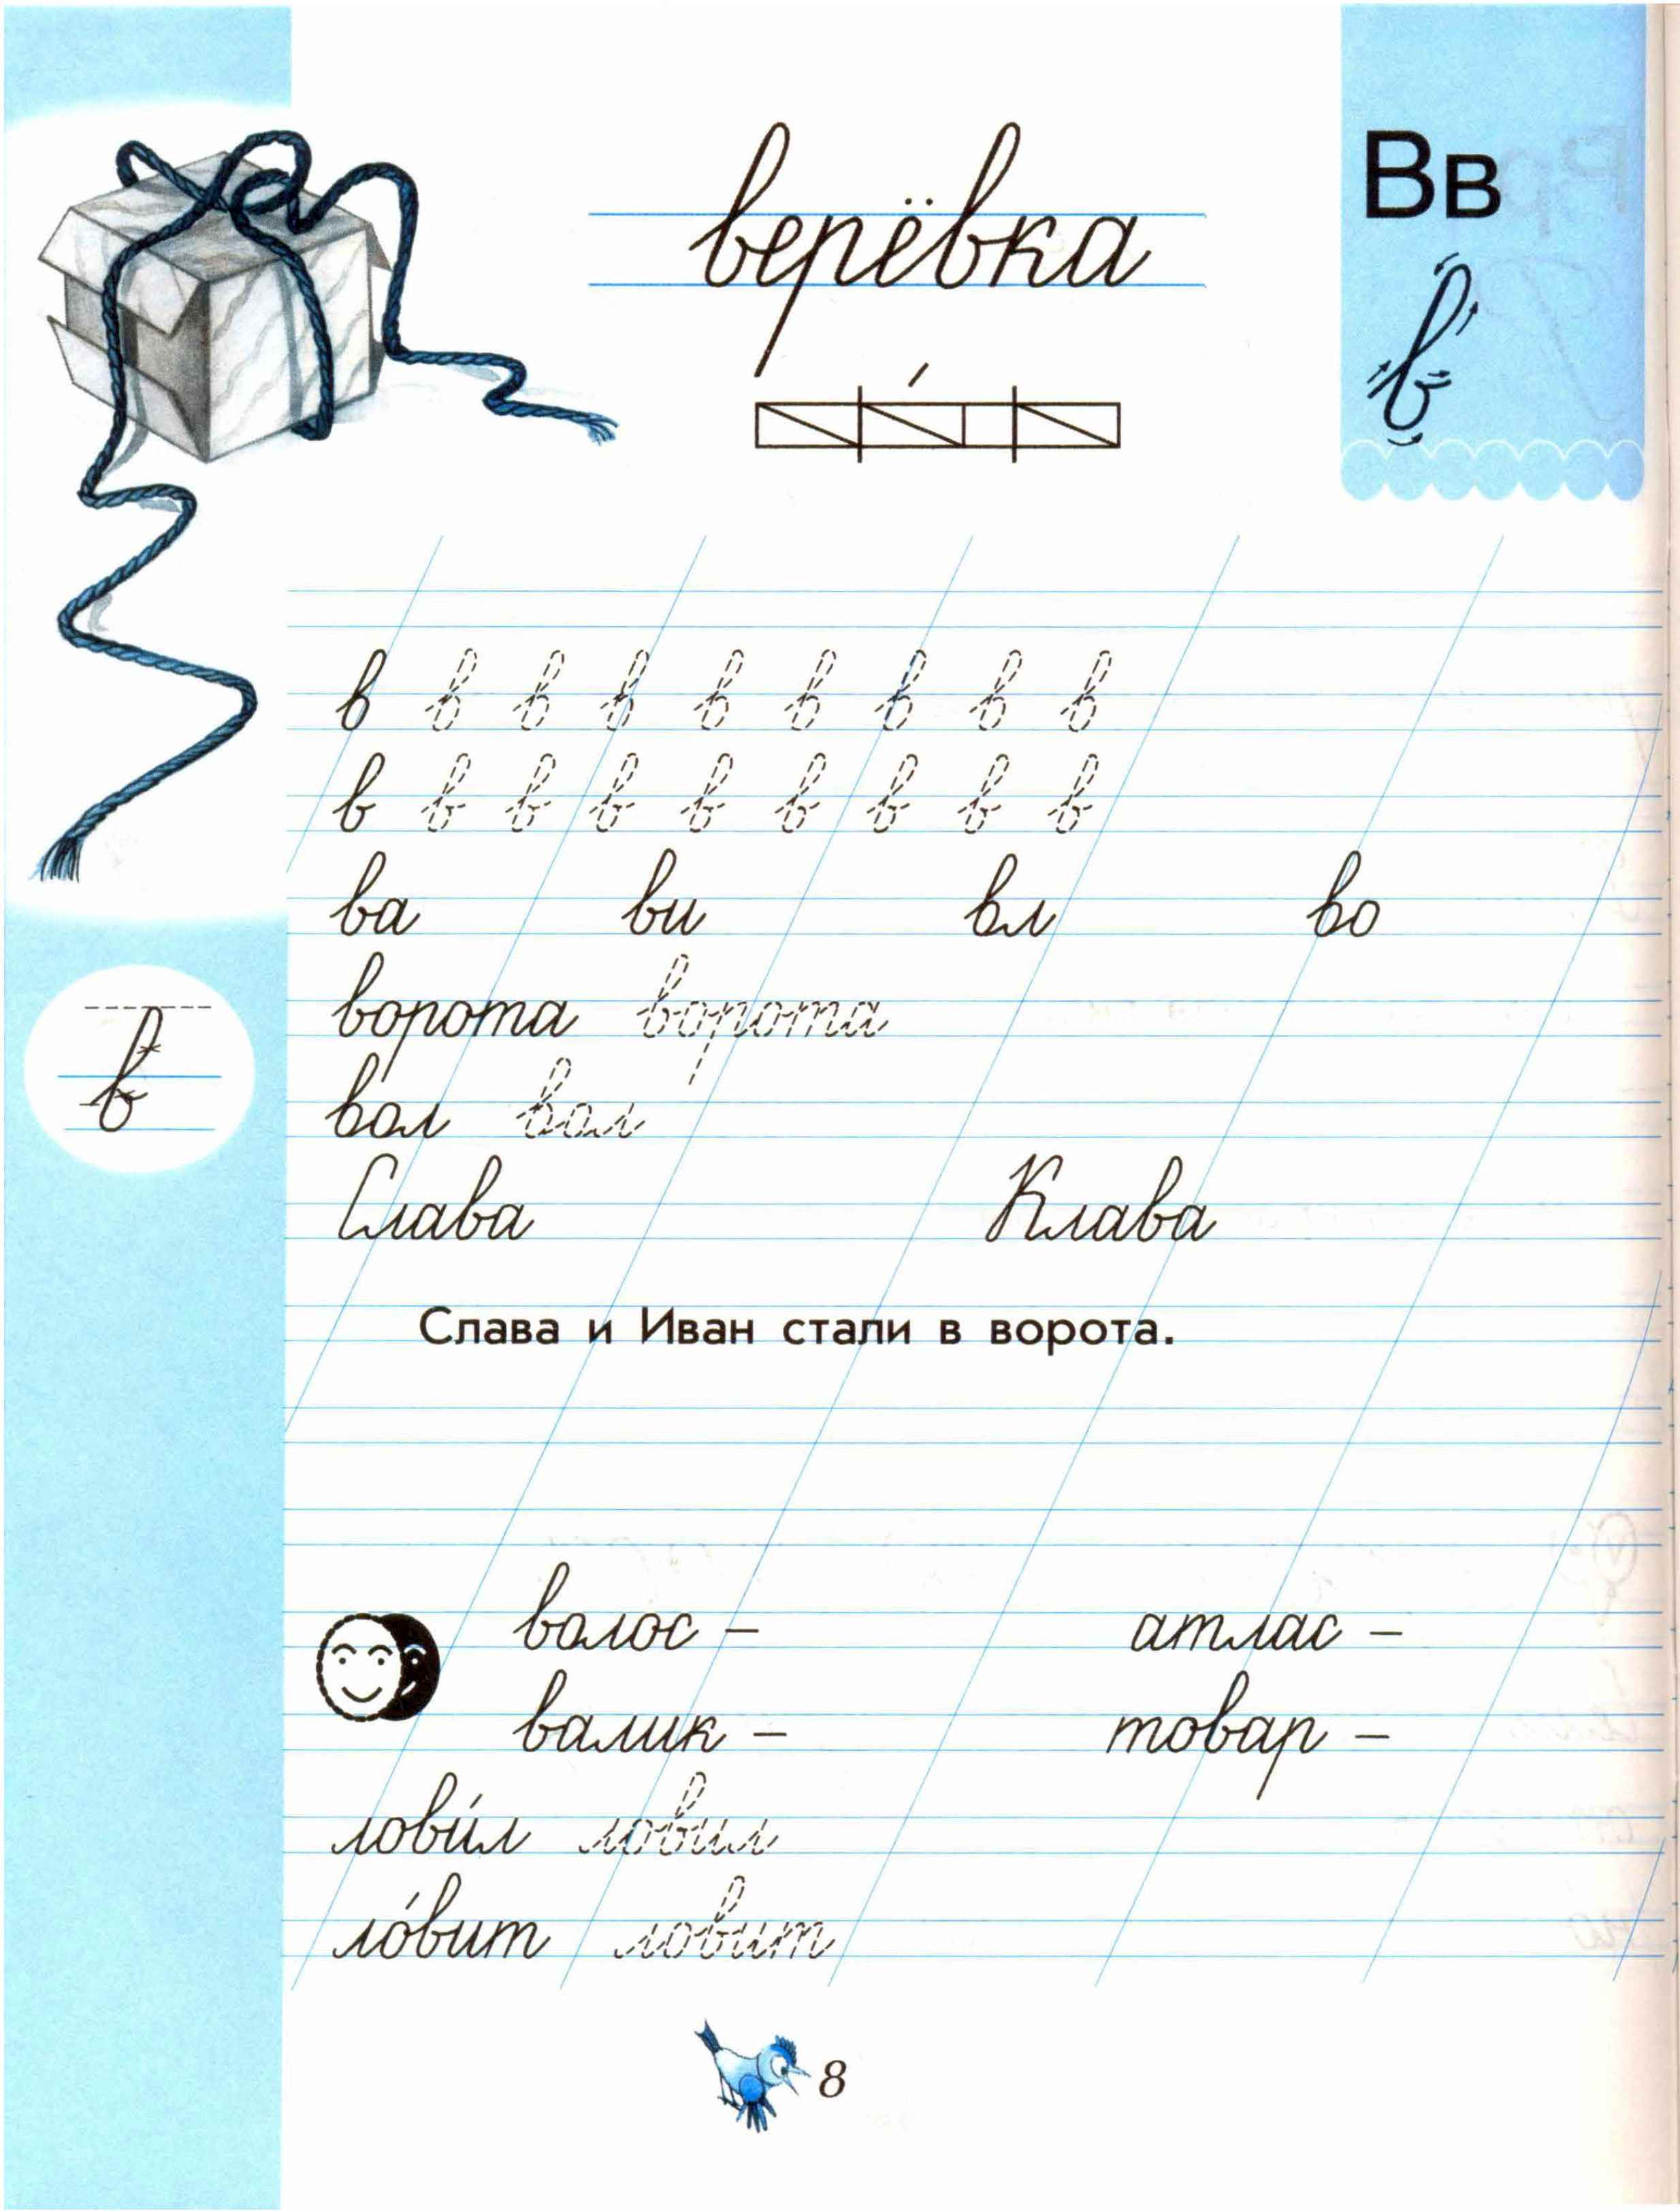 верёвка
Вв
в
в в в в в в в в в
в в в в в в в в в
ва ви вл во
ворота ворота
в
вол вол
Слава Клава
Слава и Иван стали в ворота.
волос – атлас –
валик – товар –
лови́л ловил
ло́вит ловит
8